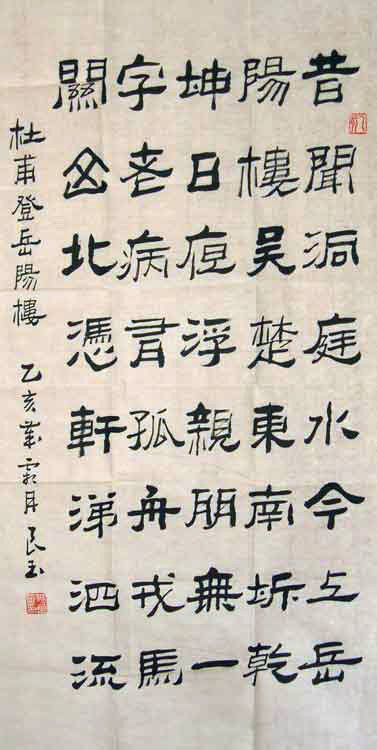 昔聞洞庭水今上岳
陽樓吳楚東南坼乾
坤日夜浮親朋無一
字老病有孤舟戎馬
關山北憑軒涕泗流
杜甫登岳陽樓 乙亥歲霜月良玉